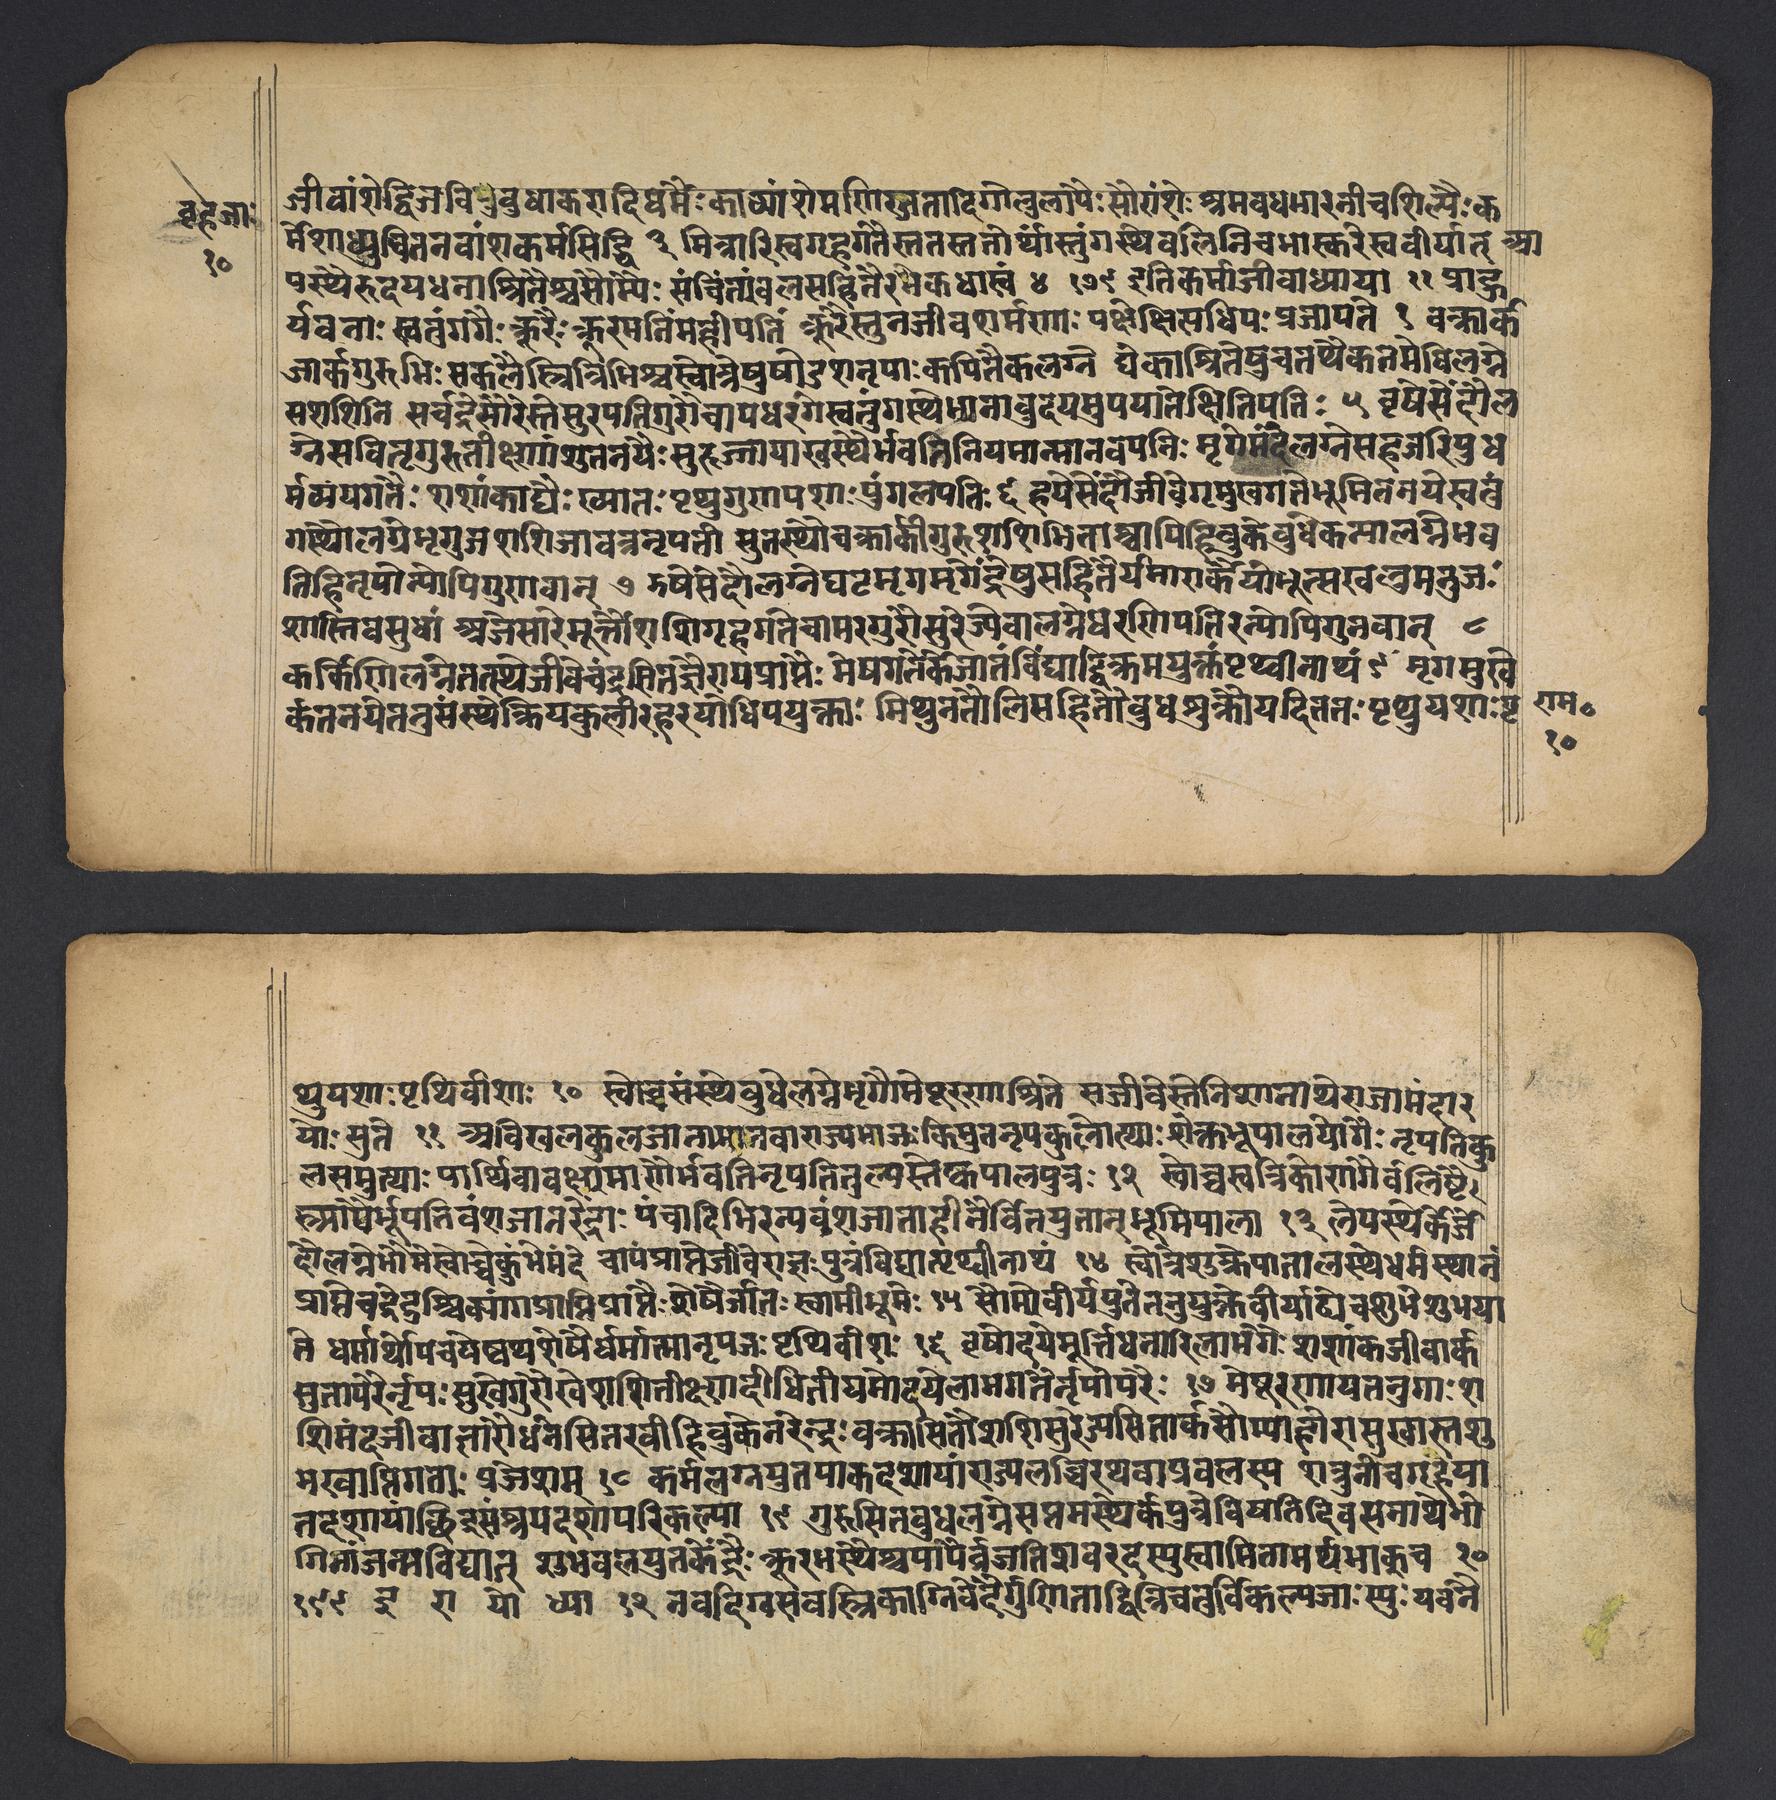 बृहज्जा॰
१०
जीवांशेद्विजविबुधाकरादिधर्मैः काव्यांशेमणिरजतादिगोलुलायैः सौरांशेश्रमवधभारनीचशिल्पैः क
र्मेशाध्युषितनवांशकर्मसिद्धिः ३ मित्रारिस्वगृहगतैस्ततस्ततोर्थास्तुंगस्थेवलिनिचभास्करेस्ववीर्यात् आ
यस्थैरुदयधनाश्रितैश्चसौम्यैः संचिंत्यंवलसहितैरनेकधास्वं ४ १७९ इतिकर्माजीवाध्याया ११ प्राहु
र्यवनाः स्वतुंगगैः क्रूरैः क्रूरमतिंमहीपतिं क्रूरैस्तुनजीवशर्मणाः पक्षेक्षित्यधिपः प्रजायते १ वक्रार्क
जार्कगुरुभिः सकलैस्त्रिभिश्चस्वोच्चेषुषोडशनृपाः कथितैकलग्ने द्येकाश्रितेषुचतथैकतमेविलग्ने
सशशिनि सर्वद्रेसौरेस्तेसुरपतिगुरौचापधरगेस्वतुंगस्थेभानावुदयमुपयातेक्षितिपतिः ५ वृषेसेंदौल
ग्नेसवितृगुरुतीक्ष्णांशुतनयैः सुहृज्जायाखस्थैर्भवतिनियमान्मानवपतिः मृगेमंदेलग्नेसहजरिपुध
र्मव्ययगतैः शशांकाद्यैः ख्यातः पृथुगुणयशाः पुंगलपतिः ६ हयेसेंदौजीवेगृमुखगतेभूमितनयेस्वतुं
गस्थौलग्नेभृगुजशशिजावत्रनृपती सुतस्थौवक्रार्कीगुरुशशिसिताश्चापिहिवुकेबुधेकन्यालग्नेभव
तिहिनृपोन्योपिगुणवान् ७ झषेसेंदौलग्नेघटमृगमृगेंद्रेषुसहितैर्यमारार्कैर्योभूत्सखलुमनुजः
शास्तिवसुधां अजेसारेमूर्त्तौशशिगृहगतेचामरगुरौसुरेज्येवालग्नेधरणिपतिरन्योपिगुनवान् ८
कर्किणिलग्नेतत्स्थेजीवेचंद्रसितज्ञैरायप्राप्तैः मेषगतेर्केजातंविंद्याद्विक्रमयुक्तंपृथ्वीनाथं ९ मृगमुखे
र्कतनयेतनुसंस्थेक्रियकुलीरहरयोधिपयुक्ताः मिथुनतौलिसहितौबुधशुक्रौयदिततः पृथुयशाः पृ
राम॰
१०
थुयशाः पृथिवीशः १० स्वोच्चसंस्थेबुधेलग्नेभृगौमेषूरणाश्रिते सजीवेस्तेनिशानाथेराजामंदार
योः सुते ११ अविखलकुलजातामानवाराज्यभाजः किमुतनृपकुलोत्थाः प्रोक्तभूपालयोगैः नृपतिकु
लसमुत्थाः पार्थिवावक्ष्यमाणैर्भवतिनृपतितुल्यस्तेष्वपालपुत्रः १२ स्वोच्चस्वत्रिकोणगैर्वलिष्ठै॰
स्त्र्याद्यैर्भूपतिवंशजानरेंद्राः पंचादिभिरन्यवंशजाताहीनैर्वित्तयुतान्भूमिपाला १३ लेयस्थेर्केजें
दौलग्नेभौमेस्वोच्चेकुंभेमंदे चापप्राप्तेजीवेराज्ञः पुत्रंविद्यात्पृथ्वीनाथं १४ स्वोच्चेशुक्रेपातालस्थेधर्मस्थानं
प्राप्तेचंद्रेदुश्चिक्यांगप्राप्तिप्राप्तैः शेषैर्जातः स्वामीभूमेः १५ सौम्येवीर्ययुतेतनुयुक्तेवीर्याढ्येचशुभेशुभया
ते धर्मार्थोपचयेष्वथशेषैर्धर्मात्मानृपजः पृथिवीशः १६ वृषोदयेमूर्त्तिधनारिलाभगैः शशांकजीवार्क
सुतापरैर्नृपः सुखेगुरौखेशशितीक्ष्णदीधितीयमोदयेलाभगतैर्नृपोपरैः १७ मेषूरणायतनुगाः श
शिमंदजीवाज्ञारौधनेसितरवीहिवुकेनरेन्द्रः वक्रासितौशशिसुरेज्यसितार्कसौम्याहोरासुखास्तशु
भखाप्तिगताः प्रजेशम् १८ कर्मलग्नयुतपाकदशायांराज्यलब्धिरथवाप्रवलस्य शत्रुनीचगृहेया
तदशायांच्छिद्रसंश्रयदशापरिकल्प्या १९ गुरुसितबुधलग्नेसप्तमस्थेर्कपुत्रेवियतिदिवसनाथेभो
गिनांजन्मविद्यात् शुभवलयुतकेंद्रैः क्रूरभस्थैश्चपापैर्व्रजतिशवरदस्युस्वामितामर्थभाकूच २०
१९९ इ रा यो ध्या १२ नवदिग्वसवस्त्रिकाग्निवेदैर्गुणिताद्वित्रिचतुर्विकल्पजाः स्युः यवनै